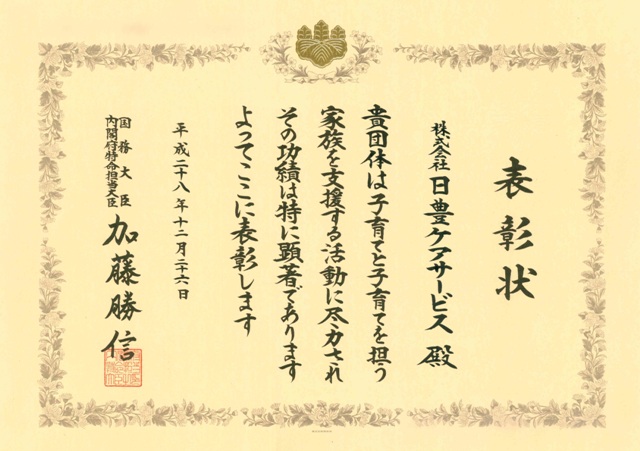 表彰状
株式会社 日豊ケアサービス 殿
貴団体は子育てと子育てを担う
家族を支援する活動に尽力され
その功績は特に顕著であります
よってここに表彰します
平成二十八年十二月二十六日
国務大臣
内閣府特命担当大臣
加藤勝信